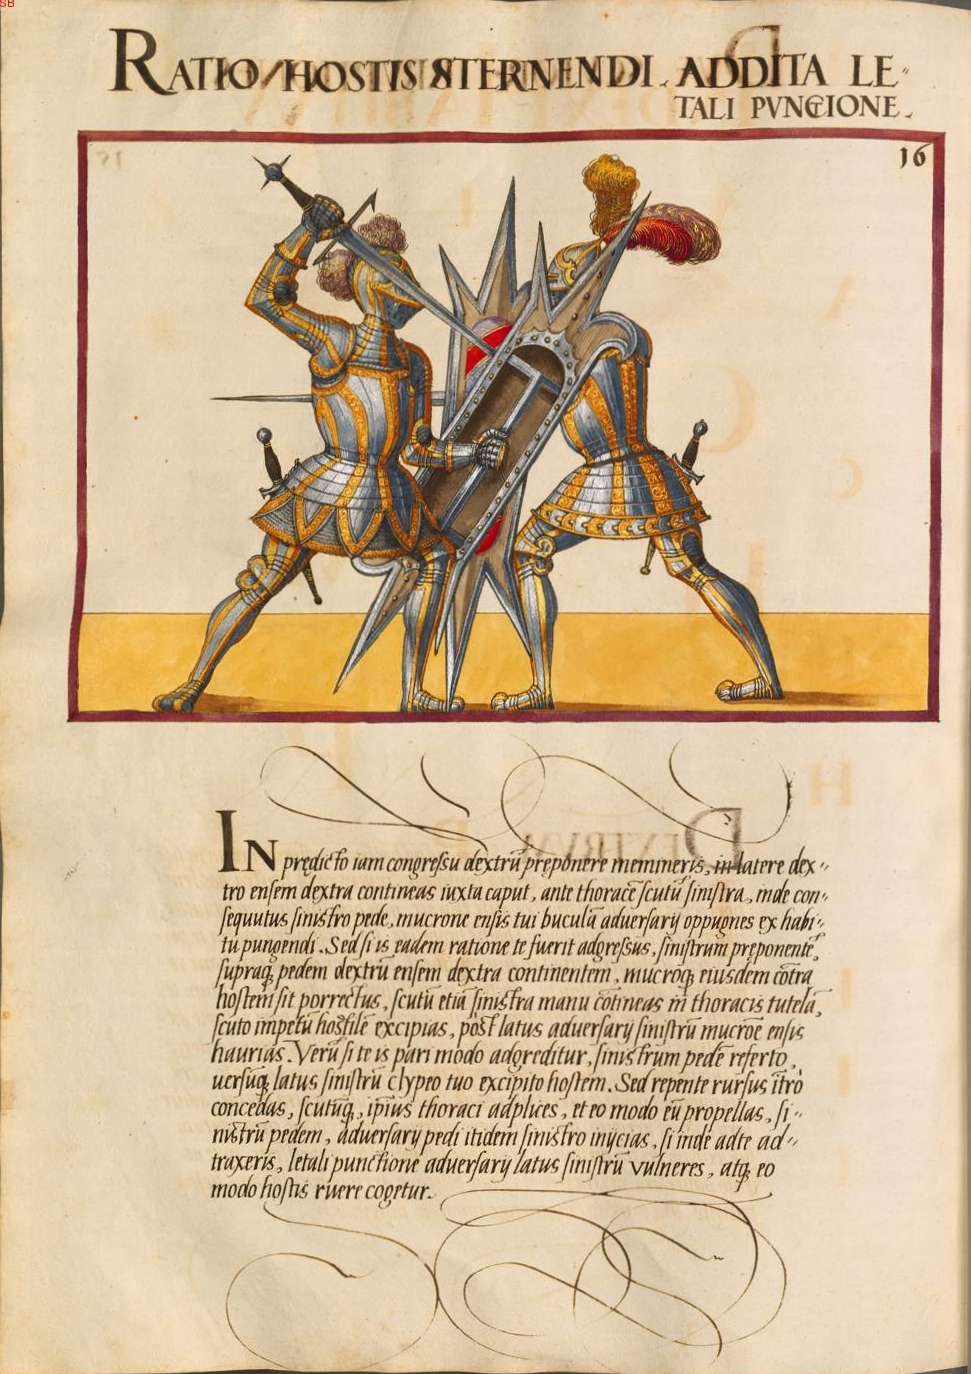 SB
RATIO HOSTIS STERNENDI. ADDITA LE-
TALI PVNCTIONE.
16
IN prędicto iam congressu dextrũ pręponere memineris, in latere dex-
tro ensem dextra contineas iuxta caput, ante thoracẽ scutũ sinistra, inde con-
sequutus sinistro pede, mucrone ensis tui buculã adversarij oppugnes ex habi-
tu pungendi. Sed si is eadem ratione te fuerit adgressus, sinistrum pręponentẽ,
supraq; pedem dextrũ ensem dextra continentem, mucroq; eiusdem cõtra
hostem sit porrectus, scutũ etiã sinistra manu cõtineas in thoracis tutelã,
scuto impetũ hostilẽ excipias, post latus adversarij sinistrũ mucrõe ensis
haurias. Verũ si te is pari modo adgreditur, sinistrum pedẽ referto,
uersũq; latus sinistrũ clypeo tuo excipito hostem. Sed repente rursus ĩtrò
concedas, scutũq; ipsius thoraci adplices, et eo modo eũ propellas, si-
nistrũ pedem, adversarij pedi itidem sinistro inijcias, si inde ad te ad-
traxeris, letali punctione adversarij latus sinistrũ vulneres, atq; eo
modo hostis ruere cogetur.